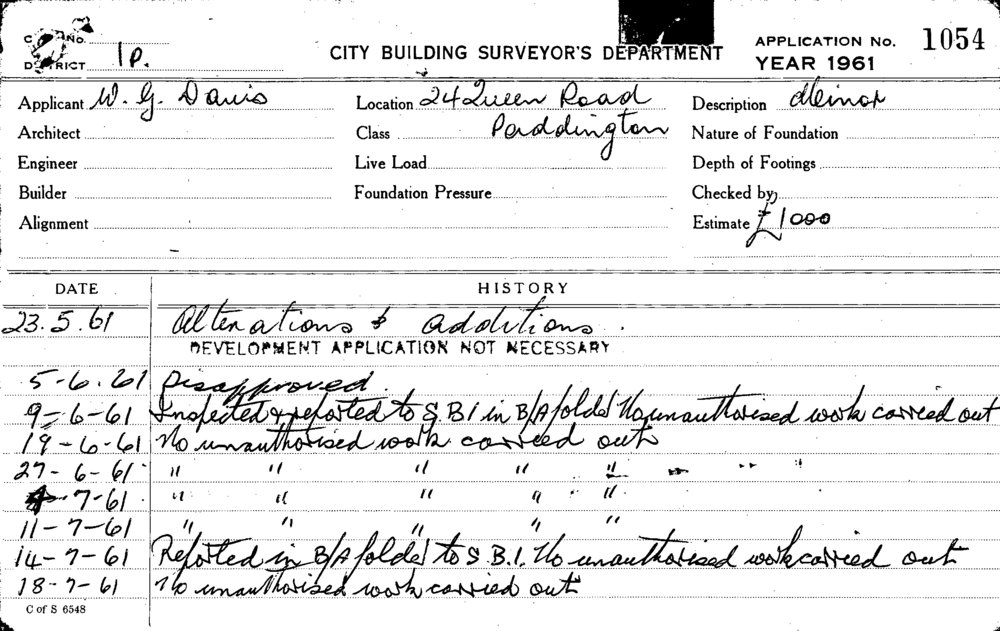 No.
DISTRICT 1P.
CITY BUILDING SURVEYOR'S DEPARTMENT
APPLICATION No. 1054
YEAR 1961
Applicant W. G. Davis
Location 24 Queen Road
Description Minor
Architect
Class Paddington
Nature of Foundation
Engineer
Live Load
Depth of Footings
Builder
Foundation Pressure
Checked by
Alignment
Estimate £1000
DATE HISTORY
23.5.61 Alterations & additions.
DEVELOPMENT APPLICATION NOT NECESSARY
5-6.61 Disapproved.
9-6-61 Inspected & reported to S.B.I in B/A folder No unauthorised work carried out
19-6-61 No unauthorised work carried out
27-6-61 " " " " " " " "
7-61 " " " " "
11-7-61 " " " " "
14-7-61 Reported in B/A folder to S.B.I. No unauthorised work carried out
18-7-61 No unauthorised work carried out
C of S 6548